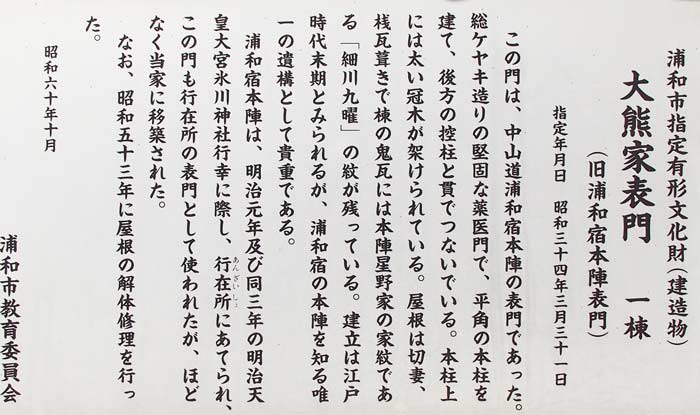 浦和市指定有形文化財(建造物)
大熊家表門　一棟
(旧浦和宿本陣表門)
指定年月日　昭和三十四年三月三十一日
この門は、中山道浦和宿本陣の表門であった。
総ケヤキ造りの堅固な薬医門で、平角の本柱を
建て、後方の控柱と貫でつないでいる。本柱上
には太い冠木が架けられている。屋根は切妻、
桟瓦葺きで棟の鬼瓦には本陣星野家の家紋であ
る「細川九曜」の紋が残っている。建立は江戸
時代末期とみられるが、浦和宿の本陣を知る唯
一の遺構として貴重である。
浦和宿本陣は、明治元年及び同三年の明治天
皇大宮氷川神社行幸に際し、行在所にあてられ、
あんざいしょ
この門も行在所の表門として使われたが、ほど
なく当家に移築された。
なお、昭和五十三年に屋根の解体修理を行っ
た。
昭和六十年十月
浦和市教育委員会